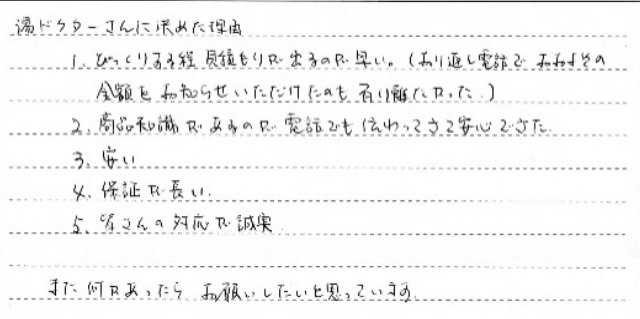 湯ドクターさんに決めた理由
1. びっくりする程 見積もりが出るのが早い。(おり返し電話で おおよその
金額を お知らせいただけたのも 有り難たかった。)
2. 商品知識があるので 電話でも 伝わってきて安心できた.
3. 安い
4. 保証が長い.
5. 皆さんの対応が誠実
また何かあったら お願いしたいと思っています.